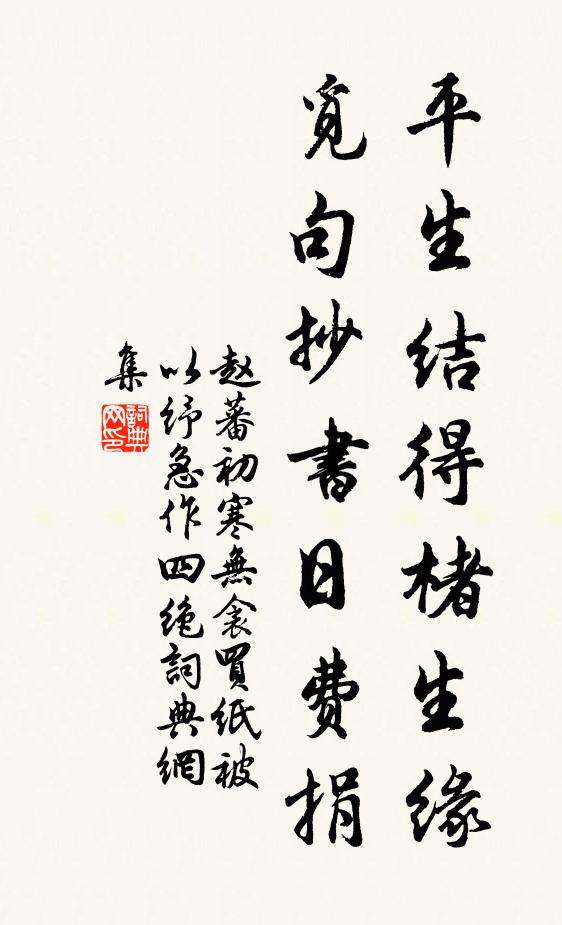 平生结得楮生缘
觅句抄書日费捐
赵蕃初寒無衾買紙被
以纾急作四绝詞典網
集
詞典网印